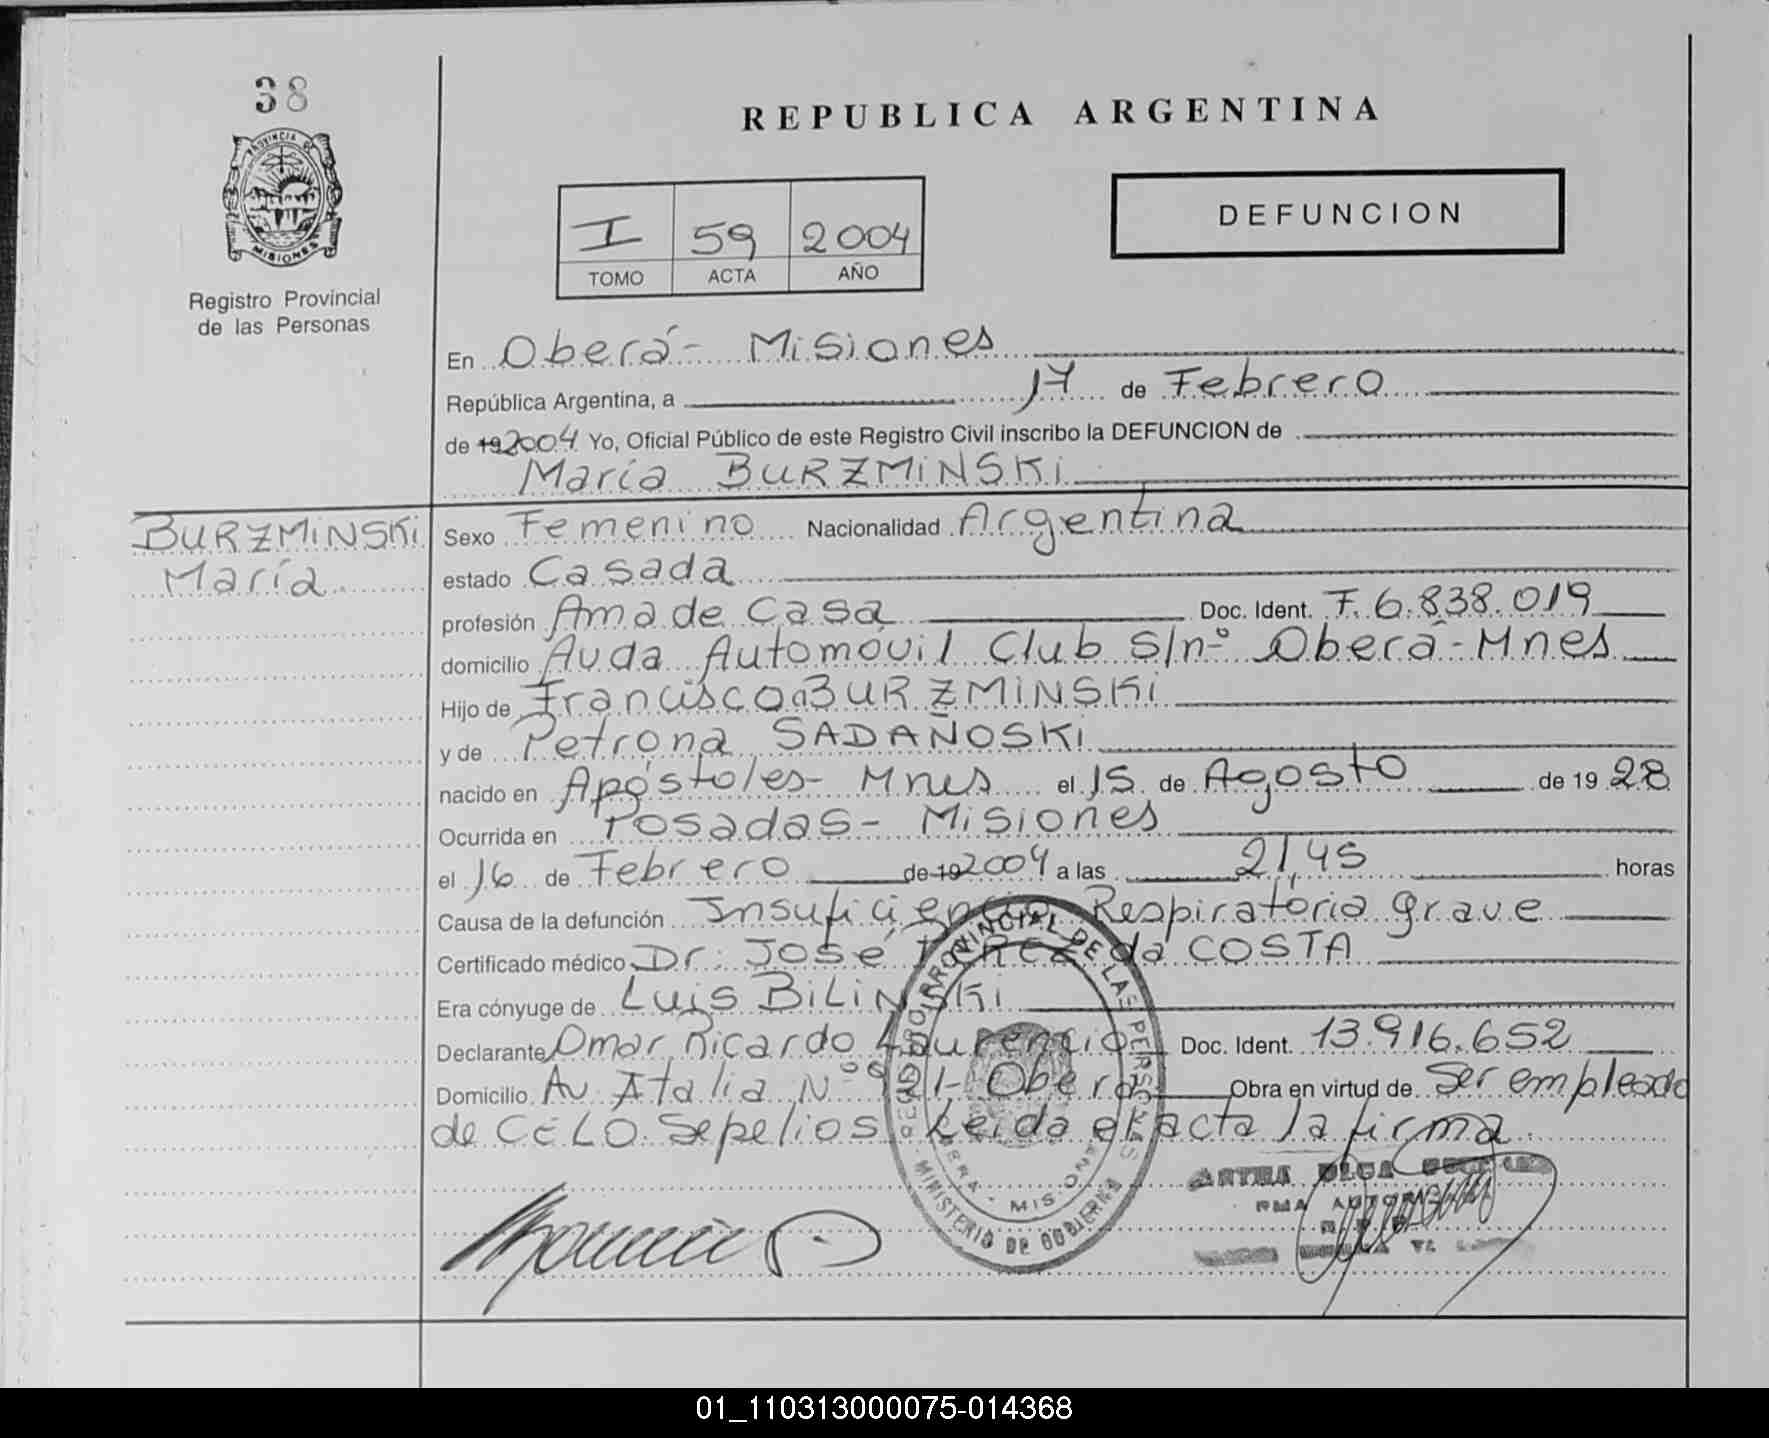 38
PROVINCIA DE
MISIONES
Registro Provincial
de las Personas
REPUBLICA ARGENTINA
I 59 2004
TOMO ACTA AÑO
DEFUNCION
En Oberá - Misiones
República Argentina, a 17 de Febrero
de 192004 Yo, Oficial Público de este Registro Civil inscribo la DEFUNCION de
María BURZMINSKI
BURZMINSKI
María
Sexo Femenino Nacionalidad Argentina
estado Casada
profesión Ama de Casa Doc. Ident. F. 6.838.019
domicilio Avda Automóvil Club S/nº Oberá - Mnes
Hijo de Francisco BURZMINSKI
y de Petrona SADAÑOSKI
nacido en Apóstoles - Mnes el 15 de Agosto de 1928
Ocurrida en Posadas - Misiones
el 16 de Febrero de 192004 a las 21,45 horas
Causa de la defunción Insuficiencia Respiratoria grave
Certificado médico Dr. José da COSTA
Era cónyuge de Luis BILINSKI
Declarante Omar Ricardo Laurencio Doc. Ident. 13.916.652
Domicilio Av Italia Nº 921 - Oberá Obra en virtud de Ser empleado
de CELO Sepelios. Leida el acta la firma
REGISTRO PROVINCIAL DE LAS PERSONAS
OBERA - MISIONES
- MINISTERIO DE GOBIERNO
OLGA
01_110313000075-014368